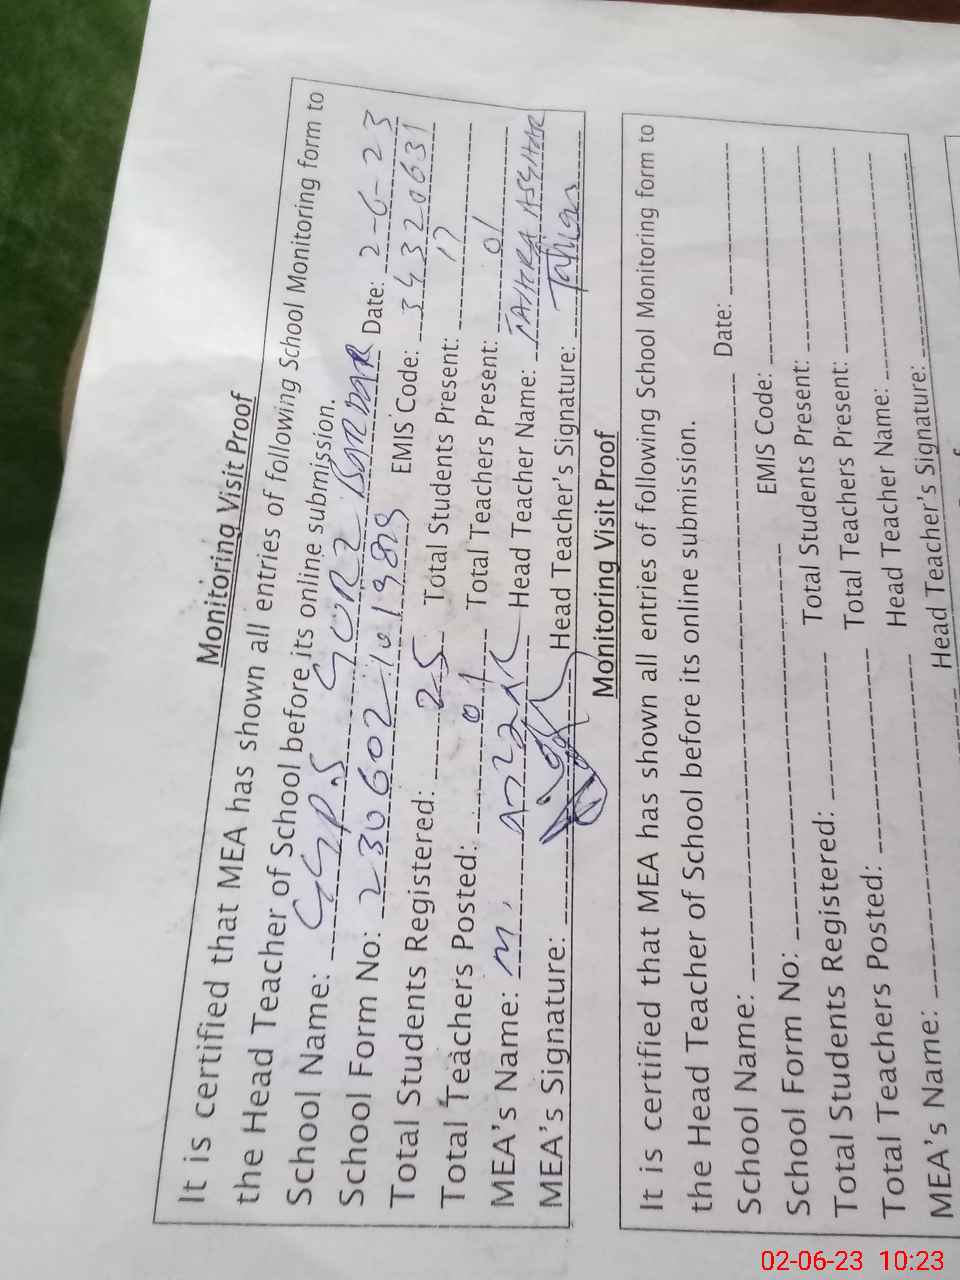 Monitoring Visit Proof
It is certified that MEA has shown all entries of following School Monitoring form to
the Head Teacher of School before its online submission.
School Name: GGPS Date: 2-6-23
School Form No: EMIS Code: 34320631
Total Students Registered: 25 Total Students Present: 17
Total Teachers Posted: 01 Total Teachers Present: 01
MEA's Name: M. Head Teacher Name: TAHIRA ASGHAR
MEA's Signature: Head Teacher's Signature: Tahira
Monitoring Visit Proof
It is certified that MEA has shown all entries of following School Monitoring form to
the Head Teacher of School before its online submission.
School Name: Date:
School Form No: EMIS Code:
Total Students Registered: Total Students Present:
Total Teachers Posted: Total Teachers Present:
MEA's Name: Head Teacher Name:
Head Teacher's Signature:
02-06-23 10:23